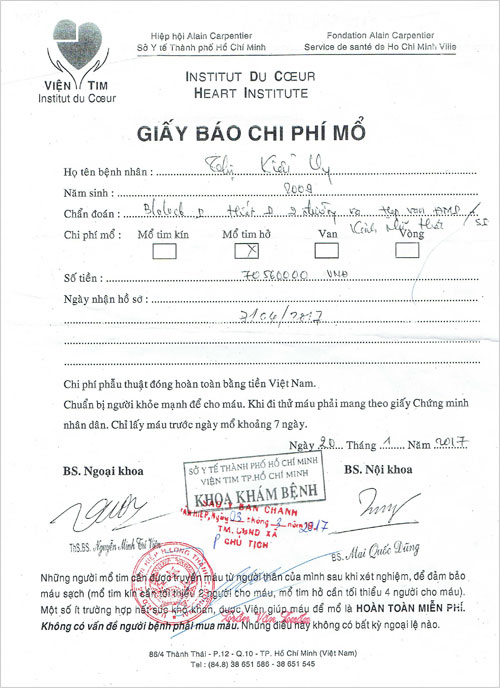 Hiệp hội Alain Carpentier
Sở Y tế Thành phố Hồ Chí Minh
Fondation Alain Carpentier
Service de santé de Ho Chi Minh Ville
VIỆN TIM
Institut du Cœur
INSTITUT DU CŒUR
HEART INSTITUTE
GIẤY BÁO CHI PHÍ MỔ
Họ tên bệnh nhân : Thị Kiều Vy
Năm sinh : 2009
Chẩn đoán : thất P 2 đường ra hẹp van ĐMP
Chi phí mổ : Mổ tim kín Mổ tim hở Van Vòng
X
Số tiền : 70560000 VNĐ
Ngày nhận hồ sơ :
21/04/2017
Chi phí phẫu thuật đóng hoàn toàn bằng tiền Việt Nam.
Chuẩn bị người khỏe mạnh để cho máu. Khi đi thử máu phải mang theo giấy Chứng minh
nhân dân. Chỉ lấy máu trước ngày mổ khoảng 7 ngày.
Ngày 20 Tháng 1 Năm 2017
BS. Ngoại khoa
BS. Nội khoa
SỞ Y TẾ THÀNH PHỐ HỒ CHÍ MINH
VIỆN TIM TP.HỒ CHÍ MINH
KHOA KHÁM BỆNH
Ngày 03 tháng 3 năm 2017
TM. UBND XÃ
CHỦ TỊCH
ThS.BS. Nguyễn Minh Trí Viên
BS. Mai Quốc Dũng
Những người mổ tim cần được truyền máu từ người thân của mình sau khi xét nghiệm, để đảm bảo
máu sạch (mổ tim kín cần tối thiểu 2 người cho máu, mổ tim hở cần tối thiểu 4 người cho máu).
Một số ít trường hợp hết sức khó khăn, được Viện giúp máu để mổ là HOÀN TOÀN MIỄN PHÍ.
Không có vấn đề người bệnh phải mua máu. Những điều này không có bất kỳ ngoại lệ nào.
86/4 Thành Thái - P.12 - Q.10 - TP. Hồ Chí Minh (Việt Nam)
Tel : (84.8) 38 651 586 - 38 651 545